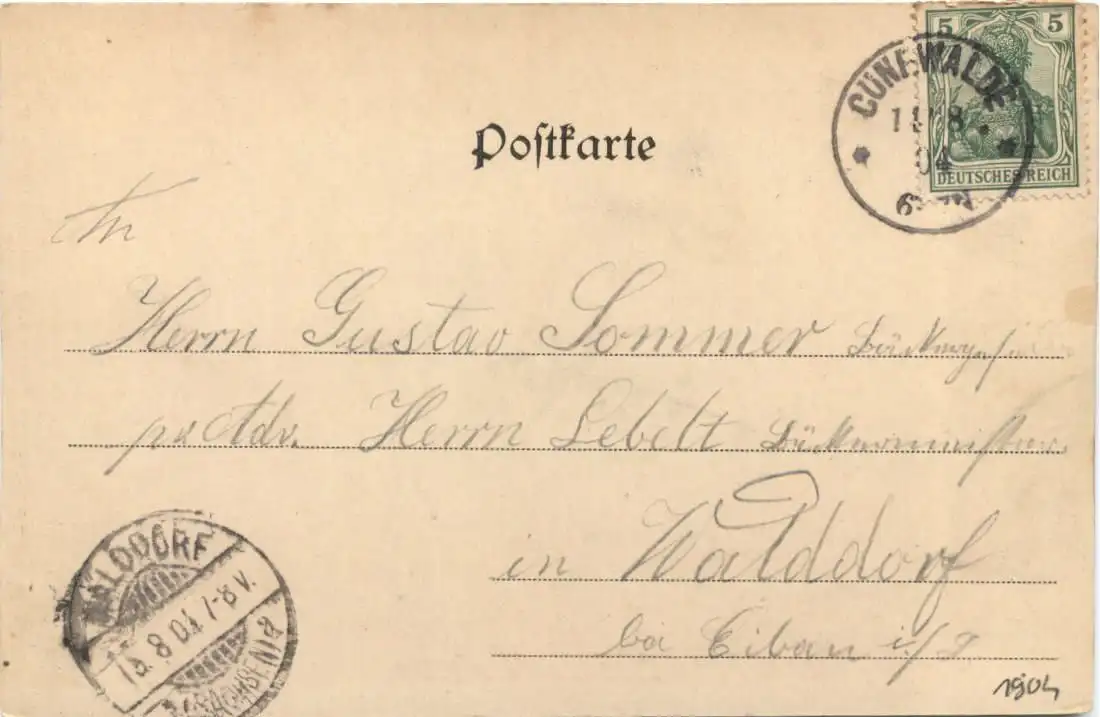 5 5
DEUTSCHES REICH
CUNEWALDE
8. 04
Postkarte
An
Herrn Gustav Sommer
pr Adr. Herrn Lebelt Bäckermeister
in Walddorf
bei Eibau i/S
WALDDORF
8 04 7-8 V.
SACHSEN
1904